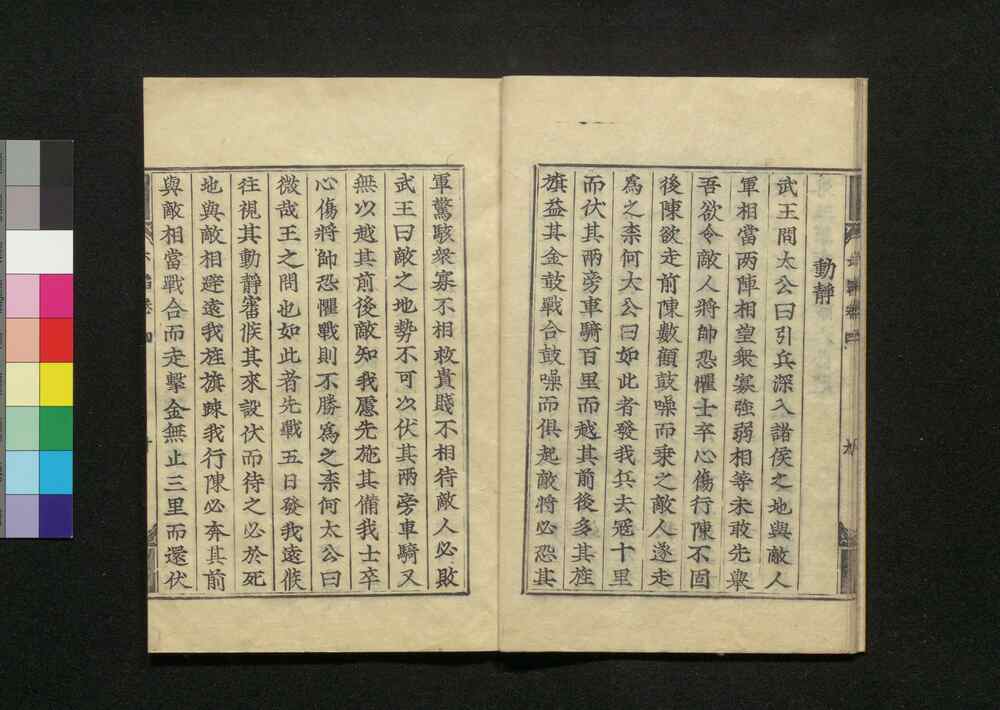 動靜
武王問太公曰引兵深入諸侯之地與敵人
軍相當两陣相望衆寡強弱相等未敢先舉
吾欲令敵人將帥恐懼士卒心傷行陳不固
後陳欲走前陳數顧鼓噪而乗之敵人遂走
爲之柰何太公曰如此者發我兵去冦十里
而伏其兩旁車騎百里而越其前後多其旌
旗益其金鼓戰合鼓噪而俱起敵將必恐其
軍驚駭衆寡不相救貴賤不相待敵人必敗
武王曰敵之地勢不可以伏其兩旁車騎又
無以越其前後敵知我慮先施其備我士卒
心傷將帥恐懼戰則不勝爲之柰何太公曰
微哉王之問也如此者先戰五日發我遠候
往視其動靜審候其來設伏而待之必於死
地與敵相避遠我旌旗踈我行陳必奔其前
與敵相當戰合而走擊金無止三里而還伏